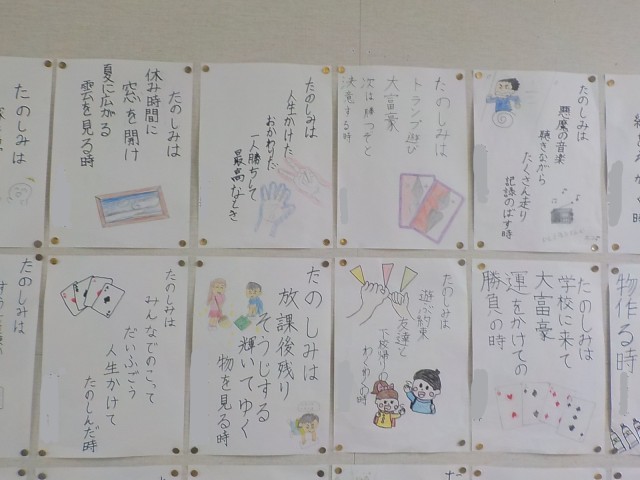 たのしみは
たのしみは
休み時間に
窓を開け
夏に広がる
雲を見る時
たのしみは
人生かけた
おかわりた
一人勝ちして
最高なとき
たのしみは
トランプ遊び
大富豪
次は勝つぞと
決意する時
たのしみは
悪魔の音楽
聴きながら
たくさん走り
記録のばす時
たのしみは
みんなでのこって
だいふごう
人生かけて
たのしんだ時
たのしみは
放課後残り
そうじする
輝いてゆく
物を見る時
たのしみは
遊ぶ約束
友達と
下校帰りの
わくわくの時
たのしみは
学校に来て
大富豪
運をかけての
勝負の時
物作る時